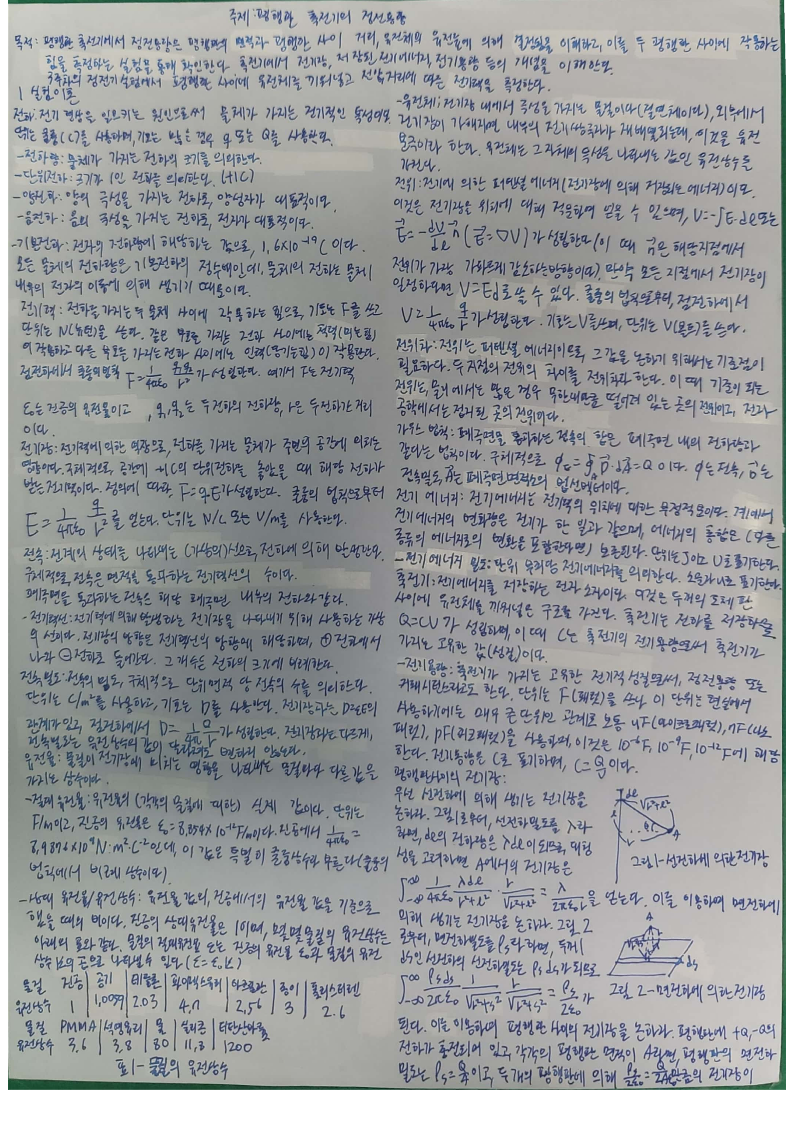 주제: 평행판 축전기의 정전용량
목적: 평행판 축전기에서 정전용량은 평행판의 면적과 평행판 사이 거리, 유전체의 유전율에 의해 결정됨을 이해하고, 이를 두 평행판 사이에 작용하는
힘을 측정하는 실험을 통해 확인한다. 축전기에서 전기장, 저장된 전기에너지, 전기용량 등의 개념을 이해한다.
평행판 사이에 유전체를 끼워넣고 전압, 거리에 따른 전기력을 측정한다.
1 실험이론
전하: 전기 현상을 일으키는 원인으로써 물체가 가지는 전기적인 특성이며
단위는 쿨롱(C)을 사용하며, 기호는 많은 경우 q 또는 Q를 사용한다.
-전하량: 물체가 가지는 전하의 크기를 의미한다.
-단위전하: 크기가 1인 전하를 의미한다. (+1C)
-양전하: 양의 극성을 가지는 전하로, 양성자가 대표적이다.
-음전하: 음의 극성을 가지는 전하로, 전자가 대표적이다.
-기본전하: 전자의 전하량에 해당하는 값으로, 1.6×10⁻¹⁹C이다.
모든 물체의 전하량은 기본전하의 정수배인데, 물체의 전하는 물체
내부의 전자의 이동에 의해 생기기 때문이다.
전기력: 전하를 가지는 두 물체 사이에 작용하는 힘으로, 기호는 F를 쓰고
단위는 N(뉴턴)을 쓴다. 같은 부호를 가지는 전하 사이에는 척력(미는힘)
이 작용하고 다른 부호를 가지는 전하 사이에는 인력(당기는힘)이 작용한다.
점전하에서 쿨롱의법칙 F=1/4πε₀ q₁q₂/r²가 성립한다. 여기서 F는 전기력
ε₀는 진공의 유전율이고, q₁, q₂는 두전하의 전하량, r은 두전하간 거리
이다.
전기장: 전기력에 의한 역장으로, 전하를 가지는 물체가 주변의 공간에 미치는
영향이다. 구체적으로, 공간에 +1C의 단위전하를 놓았을 때 해당 전하가
받는 전기력이다. 정의에 따라 F=qE가 성립한다. 쿨롱의 법칙으로부터
E=1/4πε₀ q/r²를 얻는다. 단위는 N/C 또는 V/m를 사용한다.
전속: 전계의 상태를 나타내는 (가상의)선으로, 전하에 의해 발생한다.
구체적으로, 전속은 면적을 통과하는 전기력선의 수이다.
폐곡면을 통과하는 전속은 해당 폐곡면 내부의 전하와 같다.
-전기력선: 전기력에 의해 발생하는 전기장을 나타내기 위해 사용하는 가상
의 선이다. 전기장의 방향은 전기력선의 방향에 해당하며, ⊕전하에서
나와 ⊖전하로 들어간다. 그 개수는 전하의 크기에 비례한다.
전속밀도: 전속의 밀도, 구체적으로 단위면적 당 전속의 수를 의미한다.
단위는 C/m²를 사용하고, 기호는 D를 사용한다. 전기장과는 D=εE의
관계가 있고, 점전하에서 D=1/4π Q/r²가 성립한다. 전기장과는 다르게,
전속밀도는 유전상수의 값이 달라져도 변하지 않는다.
유전율: 물질이 전기장에 미치는 영향을 나타내는 물질마다 다른 값을
가지는 상수이다.
-절대 유전율: 유전율의 (각각의 물질에 대한) 실제 값이다. 단위는
F/m이고, 진공의 유전율은 ε₀=8.854×10⁻¹²F/m이다. 진공에서 1/4πε₀=
8.9876×10⁹N·m²C⁻²인데, 이 값은 특별히 쿨롱상수라 부른다(쿨롱의
법칙에서 비례 상수이다).
-상대 유전율/유전상수: 유전율 값의, 진공에서의 유전율 값을 기준으로
했을 때의 비이다. 진공의 상대유전율은 1이며, 몇몇물질의 유전상수는
아래의 표와 같다. 물질의 절대유전율 ε는 진공의 유전율 ε₀과 물질의 유전
상수 k의 곱으로 나타낼수 있다 (ε=ε₀k)
물질 진공 공기 테플론 아크릴판 종이 폴리스티렌
유전상수 1 1.0059 2.03 4.7 2.56 3 2.6
물질 PMMA 석영유리 물 실리콘
유전상수 3.6 3.8 80 11.8 1200
표1-물질의 유전상수
-유전체: 전기장 내에서 극성을 가지는 물질이다(절연체이다), 외부에서
전기장이 가해지면 내부의 전기쌍극자가 재배열되는데, 이것을 유전
분극이라 한다. 유전체는 그 자체의 특성을 나타내는 값인 유전상수를
가진다.
전위: 전기에 의한 퍼텐셜 에너지(전기장에 의해 저장되는 에너지)이다.
이것은 전기장을 위치에 대해 적분하여 얻을 수 있으며, V=-∫E·dl 또는
E=-dV/dl n (E=-▽V)가 성립한다(이 때 n은 해당지점에서
전위가 가장 가파르게 감소하는방향이다). 만약 모든 지점에서 전기장이
일정하다면 V=Ed로 쓸 수 있다. 쿨롱의 법칙으로부터, 점전하에서
V=1/4πε₀ q/r가 성립한다. 기호는 V를쓰며, 단위는 V(볼트)를 쓴다.
전위차: 전위는 퍼텐셜 에너지이므로, 그 값을 논하기 위해서는 기준점이
필요하다. 두 지점의 전위의 차이를 전위차라 한다. 이 때 기준이 되는
전위는, 물리에서는 많은 경우 무한대만큼 떨어져 있는 곳의 전위이고, 전자
공학에서는 접지된 곳의 전위이다.
가우스 법칙: 폐곡면을 통과하는 전속의 합은 폐곡면 내의 전하량과
같다는 법칙이다. 구체적으로 φE=∮D·dA=Q 이다. φ는 전속, D는
전속밀도, A는 폐곡면 면적소의 법선벡터이다.
전기 에너지: 전기에너지는 전기력의 위치에 대한 부정적분이다. 계에서
전기에너지의 변화량은 전기가 한 일과 같으며, 에너지의 총합은 (다른
종류의 에너지로의 변환을 포함한다면) 보존된다. 단위는 J이고 U로 표기한다.
-전기에너지 밀도: 단위 부피당 전기에너지를 의미한다. 소문자 u로 표기한다.
축전기: 전기에너지를 저장하는 전자 소자이다. 이것은 두개의 도체 판
사이에 유전체를 끼워넣은 구조를 가진다. 축전기는 전하를 저장하며
Q=CV가 성립하며, 이 때 C는 축전기의 전기용량으로써 축전기가
가지는 고유한 값(성질)이다.
-전기용량: 축전기가 가지는 고유한 전기적 성질로써, 정전용량 또는
커패시턴스라고도 한다. 단위는 F(패럿)을 쓰나 이 단위는 현실에서
사용하기에는 매우 큰 단위인 관계로 보통 uF(마이크로패럿), nF(나노
패럿), pF(피코패럿)을 사용하며, 이것은 10⁻⁶F, 10⁻⁹F, 10⁻¹²F에 해당
한다. 전기용량은 C로 표기하며, C=Q/V이다.
평행판사이의 전기장:
우선 선전하에 의해 생기는 전기장을
논하자. 그림1로부터, 선전하밀도를 λ라
하면, dl의 전하량은 λdl이 되므로, 대칭
성을 고려하면 A에서의 전기장은
∫-∞^∞ 1/4πε₀ λdl/r²+l² r/√r²+l² = λ/2πε₀r을 얻는다. 이를 이용하여 면전하에
그림1-선전하에 의한전기장
의해 생기는 전기장을 논하자. 그림 2
로부터, 면전하밀도를 ρs라 하면, 두께
ds인 선전하의 선전하밀도는 ρsds가 되므로
∫-∞^∞ ρsds/2πε₀ 1/√r²+s² r/√r²+s² = ρs/2ε₀가
그림 2-면전하에 의한전기장
된다. 이를 이용하여 평행판 사이의 전기장을 논하자. 평행판에 +Q, -Q의
전하가 충전되어 있고, 각각의 평행판 면적이 A라면, 평행판의 면전하
밀도는 ρs=Q/A이고, 두개의 평행판에 의해 만큼의 전기장이